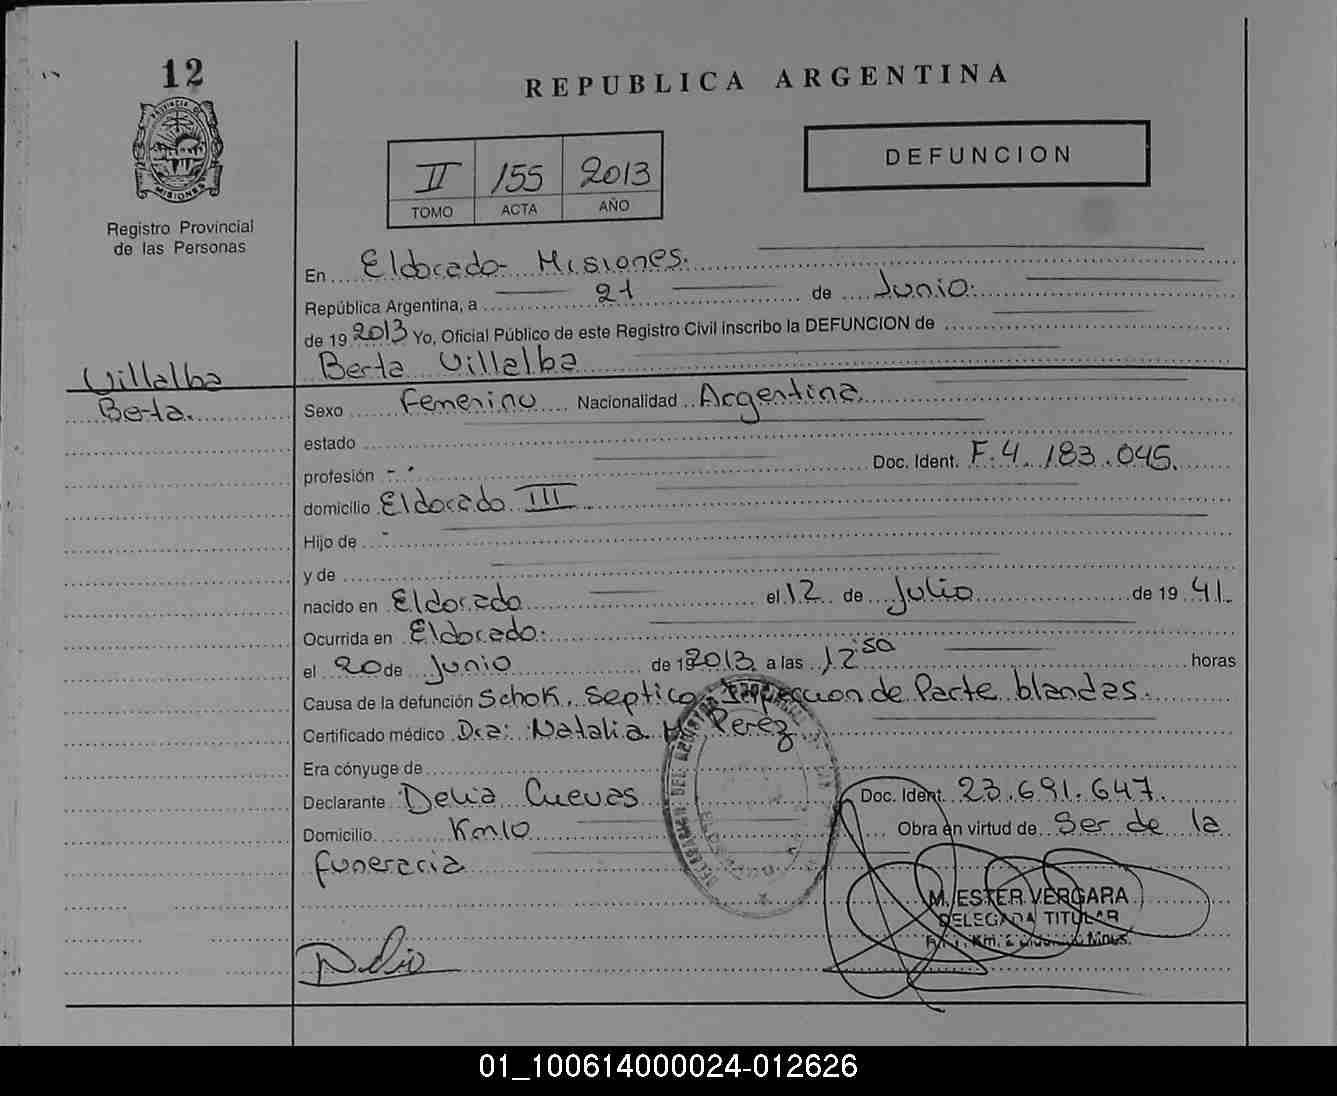 12
REPUBLICA ARGENTINA
PROVINCIA DE
MISIONES
Registro Provincial
de las Personas
II 155 2013
TOMO ACTA AÑO
DEFUNCION
En Eldorado - Misiones.
República Argentina, a 21 de Junio.
de 19 2013 Yo, Oficial Público de este Registro Civil inscribo la DEFUNCION de
Berta Villalba
Villalba
Berta.
Sexo Femenino Nacionalidad Argentina.
estado
profesión - - Doc. Ident. F. 4.183.045.
domicilio Eldorado III
Hijo de -
y de
nacido en Eldorado el 12 de Julio de 19 41.
Ocurrida en Eldorado.
el 20 de Junio de 19 2013 a las 12:50 horas
Causa de la defunción Schok. Septico Infeccion de Parte blandas.
Certificado médico Dra: Natalia M. Perez
Era cónyuge de
Declarante Delia Cuevas Doc. Ident. 23.691.647.
Domicilio Km10 Obra en virtud de Ser de la
funeraria
M. ESTER VERGARA
DELEGADA TITULAR
Delia
01_100614000024-012626